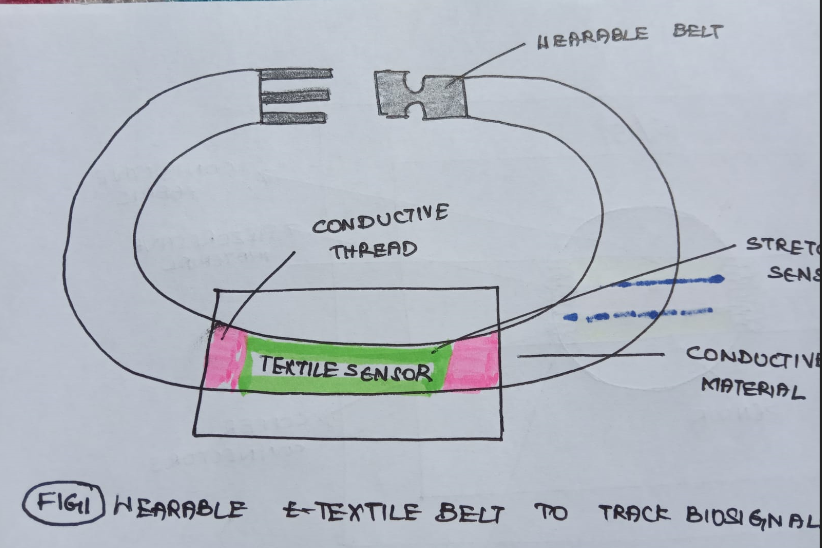 WEARABLE BELT
CONDUCTIVE
THREAD
STRETC
SENS
TEXTILE SENSOR
CONDUCTIVE
MATERIAL
FIG1 WEARABLE E-TEXTILE BELT TO TRACK BIOSIGNAL